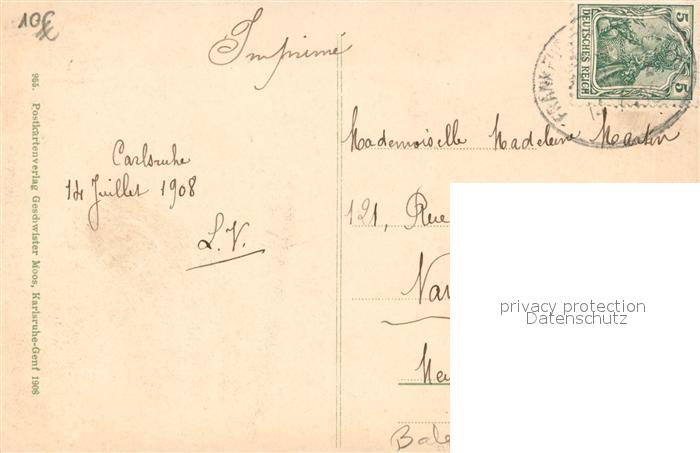 Imprimé
DEUTSCHES REICH
5 5
FRANKFU
Mademoiselle Madeleine Martin
Carlsruhe
14 Juillet 1908
L. V.
121, Rue
Nan
Meu
Bale
privacy protection
Datenschutz
955. Postkartenverlag Geschwister Moos, Karlsruhe-Genf 1908